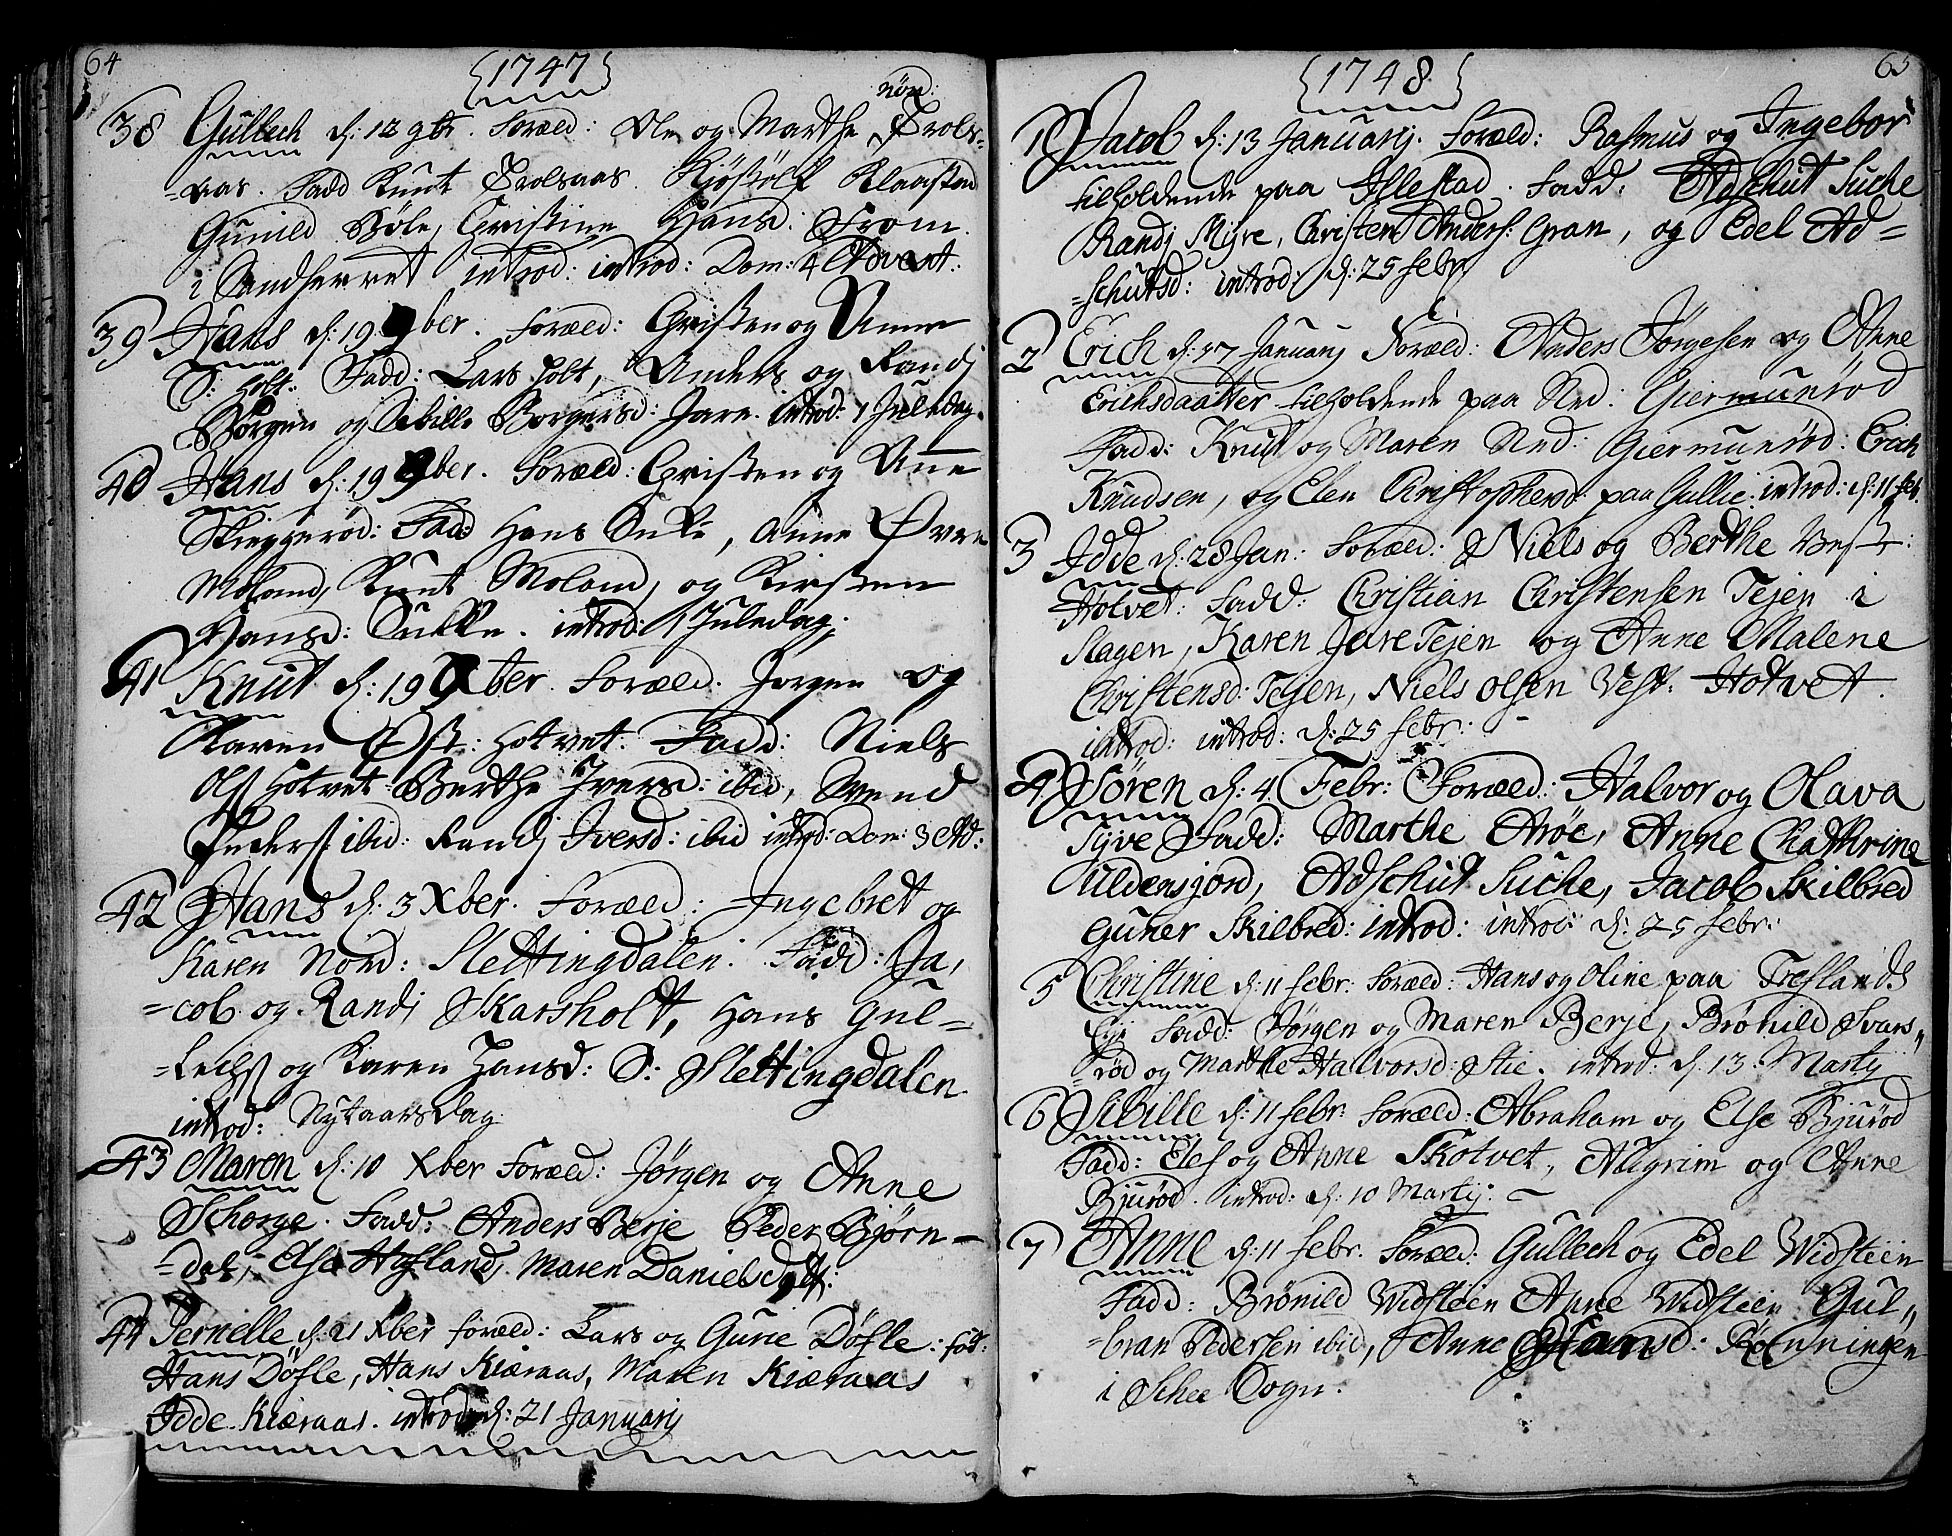 64
1747
38 Gullech d: 12 9br. Foræld: Ole og Marthe Trols-
-aas. Fadd Knut Trolsaas. Kjøstolf Klaastad
Gunild Bøle, Christine Hansd: From
i Sandherret introd: introd: Dom: 4 Advent:
39 Hans d: 19 9ber. Foræld: Christen og Anne
S: Holt. Fadd: Lars Holt, Anders og Randj
Borgen og Sibille Borgersd: Jare. introd: 1 Juledag.
40 Hans d: 19 9ber. Foræld: Christen og Anne
Skieggerød: Fadd Hans Sukke, Anne Øvre
Moland, Knut Moland, og Kirsten
Hansd: Sukke. introd: 1 Juledag.
41 Knut d: 19 Xber. Foræld. Jørgen og
Karen Øst: Hotvet. Fadd: Niels
Ols Hotvet Berthe Iversd: ibid, Svend
Peders ibid: Randj Iversd: ibid introd: Dom: 3 Ad:
42 Hans d: 3 Xber. Foræld: Ingebret og
Karen Nord: Slettingdalen. Fadd: Ja,
=cob og Randj Skarsholt, Hans Gul=
=lechs og Karen Hansd: S: Slettingdalen
introd: Nytaarsdag
43 Maren d: 10 Xber Foræld: Jørgen og Anne
Schorge. Fadd: Anders Berje Peder Bjørn-
=dal, Else Hafland, Maren Danielsdatt:
44 Pernelle d: 21 Xber foræld: Lars og Gurie Døfle: fad:
Hans Døfle, Hans Kiæraas, Maren Kiæraas
Idde Kiæraas. introd d: 21 Januarij
65
1748
1 Jacob d: 13 Januarij. Foræld: Rasmus og Ingebor
tilholdende paa Illestad. Fadd. Adschut Suche
Randj Myre, Christen Anders: Gran, og Edel Ad=
=schutsd: introd: d: 25 febr.
2 Erich d: 17 Januarij Foræld: Anders Jørgesen og Anne
Erichsdaatter tilholdende paa Ned: Giermunrød
Fadd: Knut og Maren Ned: Giermunrød. Erich
Knudsen, og Elen Christophersd: paa Gullie. introd: d: 11 feb.
3 Idde d: 28 Jan: Foræld: Niels og Berthe Vest:
Hotvet: Fadd: Christian Christensen Tejen i
Slagen, Karen Jure Tejen og Anne Malene
Christensd: Tejen, Niels Olsen Vest: Hotvet.
introd: introd: d: 25 febr.
4 Søren d: 4 Febr: Foræld: Halvor og Olava
Syve Fadd: Marthe Arøe, Anne Chathrine
Uldensjord, Adschut Suche, Jacob Skilbred
Guner Skilbred: introd: introd: d: 25 febr:
5 Christine d: 11 febr. Foræld: Hans og Oline paa Treflands
Eje Fadd: Jørgen og Maren Berje, Brønild Svars,,
=rød og Marthe Halvorsd: Stie. introd. d. 13. Martij
6 Sibille d: 11 febr. Foræld: Abraham og Else Bjurød
Fadd: Elef og Anne Skotvet, Allgrim og Anne
Bjurød. introd: d: 10 Martij: -
7 Anne d: 11 febr. Foræld: Gullech og Edel Widsteen
Fadd: Brønild Widsteen Anne Widsteen Gul,,
=bran Pedersen ibid, Anne Hansd: Rønningen
i Schee Sogn.